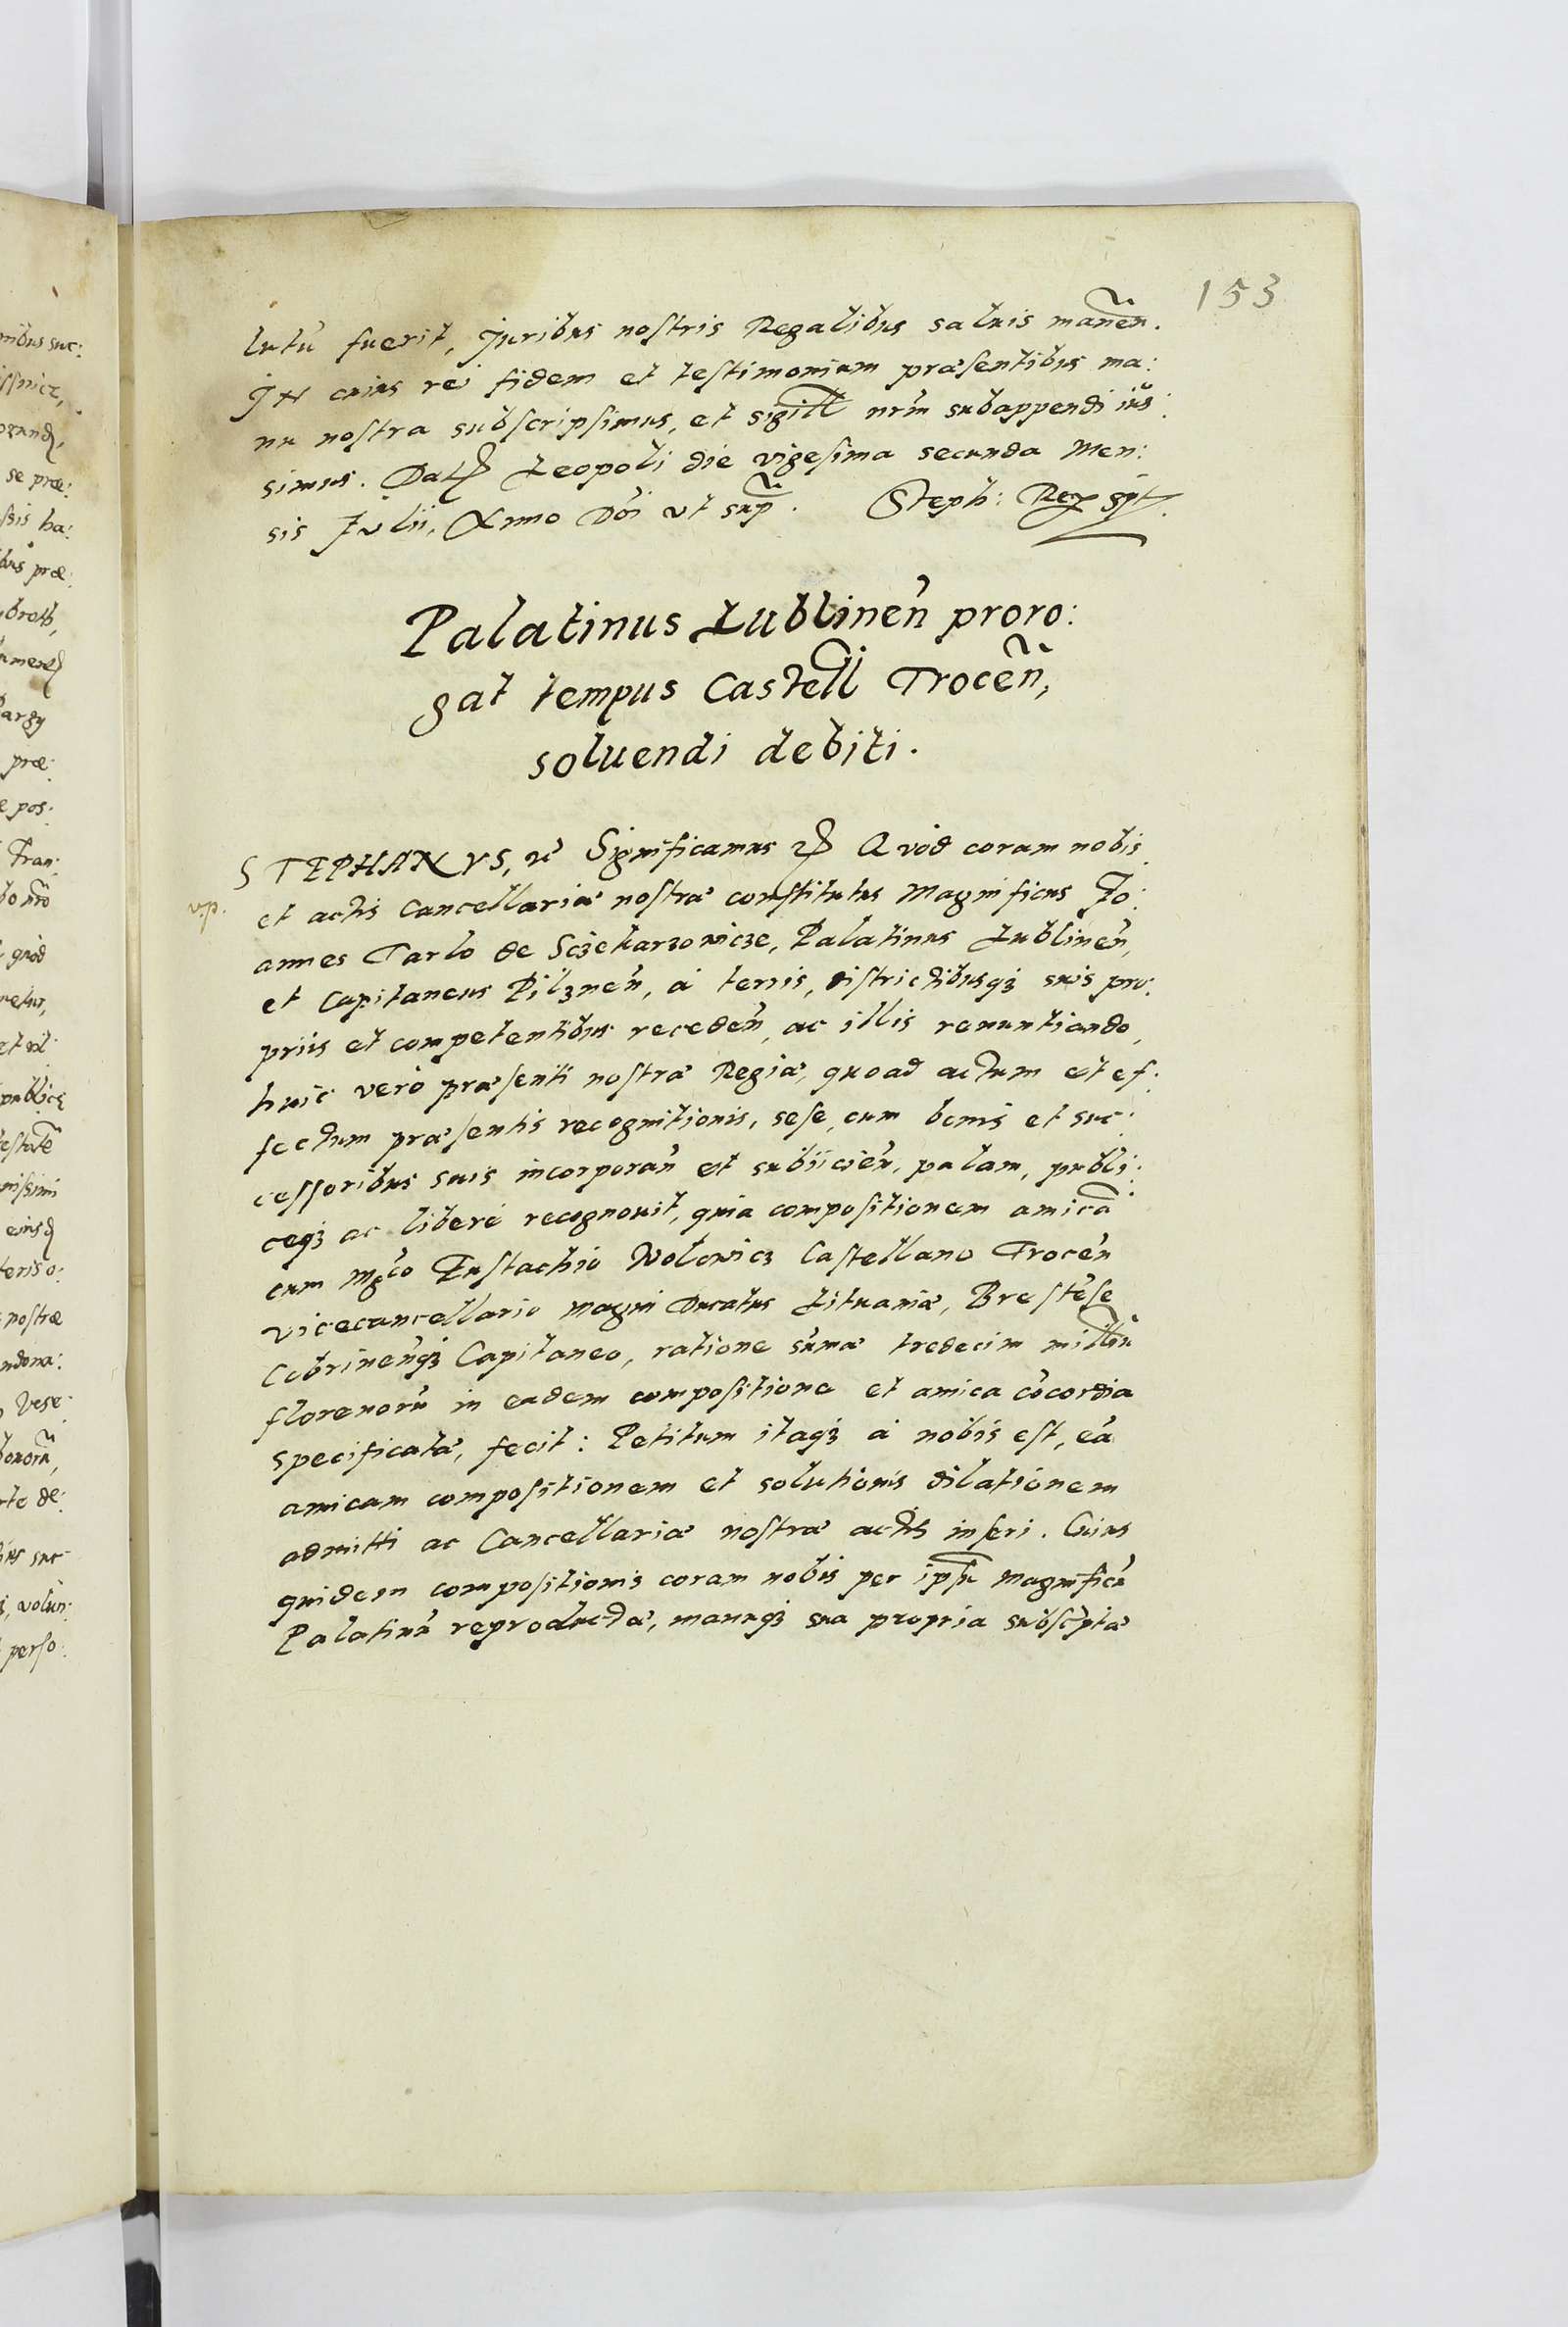 153
lutũ fuerit, Juribus nostris Regalibus saluis maneñ.
IN cuius rei fidem et testimonium præsentibus ma:
nu nostra subscripsimus, et sigill nrm̃ subappendi ius:
simus. Dat Leopoli die vigesima secunda Men:
sis Julii, Anno Dñi vt sup̃. Steph: Rex sp̃t
Palatinus Lublineñ proro:
gat tempus Castell Troceñ,
soluendi debiti.
STEPHANVS, ꝛc̃ Significamus ꝛc Quod coram nobis
v.p.
et actis Cancellariæ nostræ constitutus Magnificus Jo:
annes Tarlo de Sczekarzowicze, Palatinus Lublineñ,
et Capitaneus Pilzneñ, á terris, districtibusqꝫ suis pro:
priis et competentibus recedeñ, ac illis renuntiando,
huic vero præsenti nostræ Regiæ, quoad actum et ef:
fectum præsentis recognitionis, sese, cum bonis et suc:
cessoribus suis incorporañ et subiicieñ, palam, publi:
ceqꝫ ac liberé recognouit, quia compositionem amicã
cum Mgco Eustachio Wolowicz Castellano Troceñ
vicecancellario magni Ducatus Lituaniæ, Brestẽse
Cobrineñqꝫ Capitaneo, ratione sũmæ tredecim milliũ
florenorũ in eadem compositione et amica cõcordia
specificatæ, fecit: Petitum itaqꝫ á nobis est, eã
amicam compositionem et solutionis dilationem
admitti ac Cancellariæ nostræ actis inseri. Cuius
quidem compositionis coram nobis per ipsũ Magnificũ
Palatinũ reproductæ, manuqꝫ sua propria subscptæ